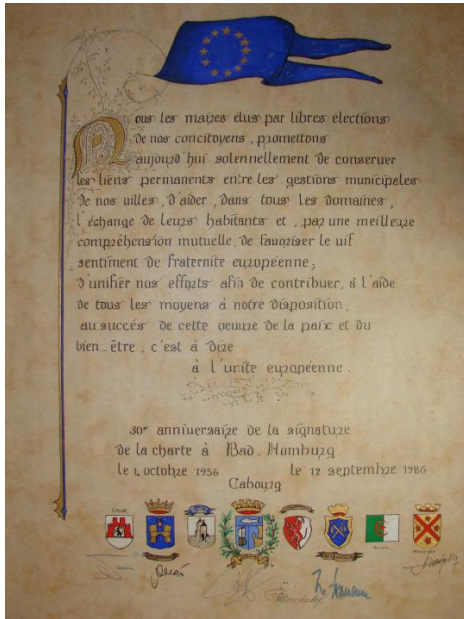 Nous les maires élus par libres élections
de nos concitoyens, promettons
aujourd'hui solennellement de conserver
les liens permanents entre les gestions municipales
de nos villes, d'aider, dans tous les domaines,
l'échange de leurs habitants et, par une meilleure
compréhension mutuelle, de favoriser le vif
sentiment de fraternite européenne;
d'unifier nos efforts afin de contribuer, à l'aide
de tous les moyens à notre disposition,
au succés de cette oeuvre de la paix et du
bien-être, c'est à dire
à l'unite européenne.
30e anniversaire de la signature
de la charte à Bad-Homburg
le 4 octobre 1956 le 12 septembre 1986
Cabourg
CHUR